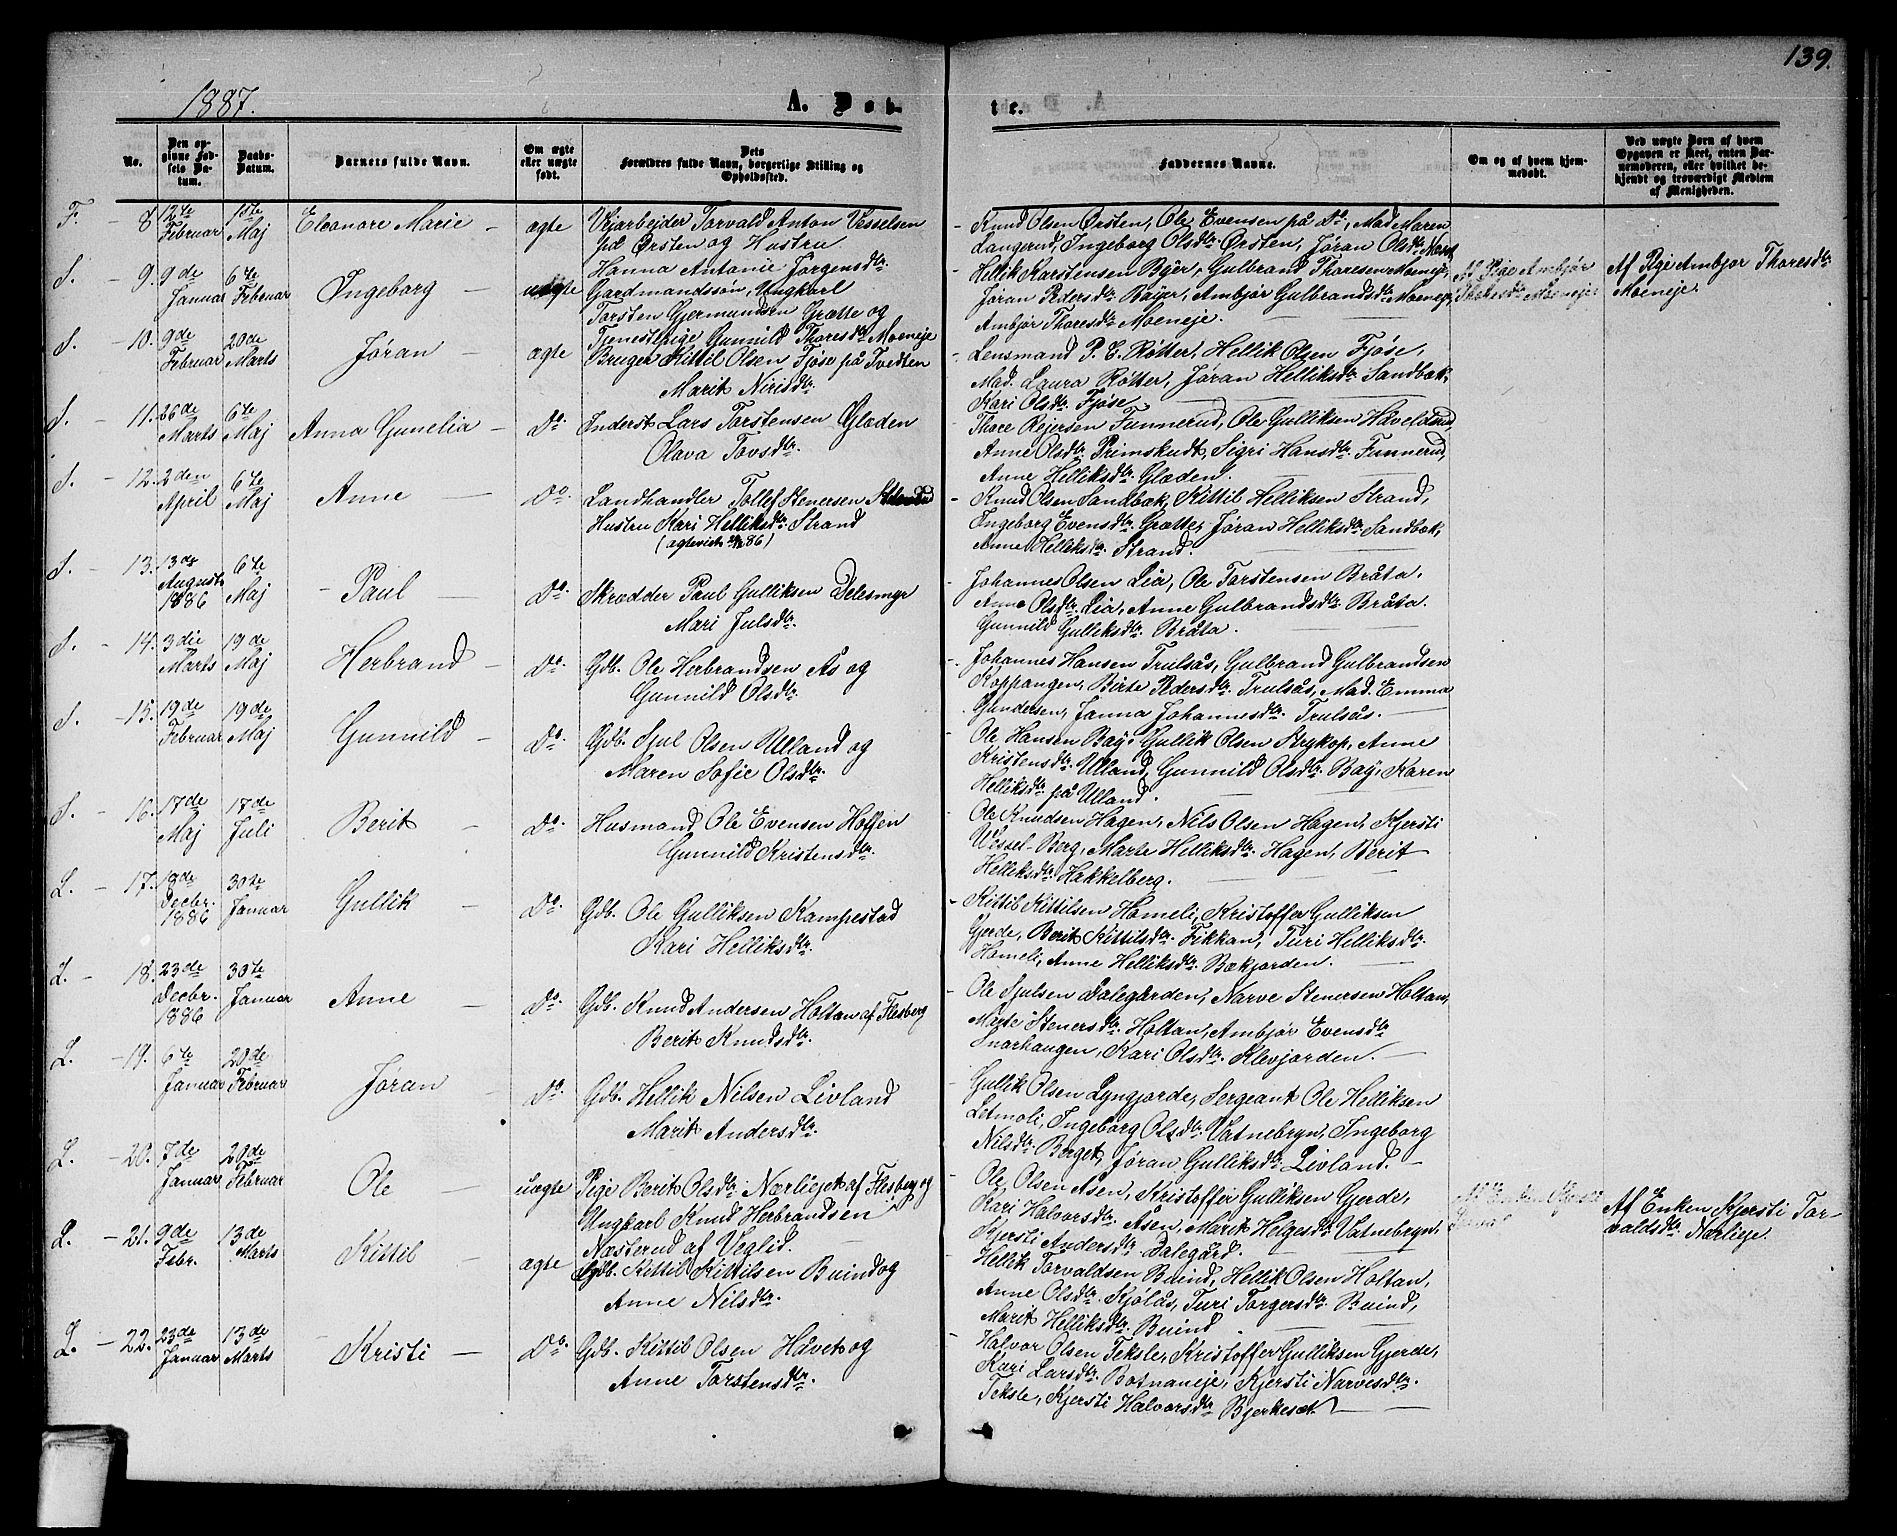 139.
1887.
A. Døb-
te.
No.
Den op-
givne Fød-
sels Da-
tum.
Daabs-
Datum.
Barnets fulde Navn.
Om ægte
eller uægte
født.
Dets
Forældres fulde Navn, borgerlige Stilling og
Opholdssted.
Faddernes Navne.
Om og af hvem hjem-
medøbt.
Ved uægte Barn af hvem
Opgaven er skeet, enten Bar-
nemoderen, eller hvilket be-
kjendt og troværdigt Medlem
af Menigheden.
F. - 8. 12te
Februar
15te
Maj
Eleonore Marie -
ægte
Vejarbejder Torvald Anton Vesselsen
Ørsten og Hustru
Hanna Antonie Jørgensdtr.
- Knud Olsen Ørsten, Ole Evensen på Do, Mad. Maren
Langerud, Ingeborg Olsdtr. Ørsten, Jøran Olsdtr.
S. - 9. 9de
Januar
6te
Februar
Ingeborg -
uægte
Gardmandssøn, Ungkarl
Torsten Gjermundsen Grætte og
Tjenestpige Gunnild Thoresdtr. Moeneje
- Hellik Karstensen Bøer, Gulbrand Thoresen Moeneje,
Jøran Pedersdtr. Bøer, Ambjør Gulbrandsdtr. Moeneje,
Ambjør Thoresdtr. Moeneje.
Af Pige Ambjør
Thoresdtr. Moeneje.
Af Pige Ambjør Thoresdtr.
Moeneje.
S. - 10. 9de
Februar
20de
Marts
Jøran -
ægte
Bruger Kittil Olsen Fjøse på Tvedten
Marit Nirisdtr.
- Lensmand P. C. Røtter, Hellik Olsen Fjøse,
Mad. Laura Røtter, Jøran Helliksdtr. Sandbæk,
Kari Olsdtr. Fjøse
S. - 11. 26de
Marts
6te
Maj
Anna Gunelia -
Do.
Inderst Lars Torstensen Glæden
Olava Tovsdtr.
- Thore Rejersen Funnerud, Ole Gulliksen Håvelsrud,
Anne Olsdtr. Primskudt, Sigri Hansdtr. Funnerud,
Anne Helliksdtr. Glæden.
S. - 12. 2den
April
6te
Maj
Anne -
Do.
Landhandler Tollef Stenersen
Hustru Kari Helliksdtr. Strand
(ægteviet 86)
- Knud Olsen Sandbæk, Kittil Helliksen Strand,
Ingeborg Evensdtr. Grætte, Jøran Helliksdtr. Sandbæk,
Anne Helliksdtr. Strand.
S. - 13. 13de
August
1886
6te
Maj
- Paul -
Do.
Skrædder Paul Gulliksen Delesmyr
Mari Julsdtr.
- Johannes Olsen Lia, Ole Torstensen Bråta.
Anne Olsdtr. Lia, Anne Gulbrandsdtr. Bråta.
Gunnild Gulliksdtr. Bråta.
S. - 14. 3die
Marts
19de
Maj
Herbrand -
Do.
Gdb. Ole Herbrandsen Ås og
Gunnild Olsdtr.
- Johannes Hansen Trulsås, Gulbrand Gulbrandsen
Koppangen, Birte Pedersdtr. Trulsås, Mad. Emma
Gundersen, Janna Johannesdtr. Trulsås.
S. - 15. 19de
Februar
19de
Maj
Gunnild -
Do.
Gdb. Sjul Olsen Ulland og
Maren Sofie Olsdtr.
- Ole Hansen Bay, Gullik Olsen Strykop, Anne
Kristensdtr. Ulland, Gunnild Olsdtr. Bay, Karen
Helliksdtr. på Ulland.
S. - 16. 17de
Maj
17de
Juli
Berit -
Do.
Husmand Ole Evensen Hoffen
Gunnild Kristensdtr.
- Ole Knudsen Hagen, Nils Olsen Hagen, Kjersti
Wessel-Berg, Marte Helliksdtr. Hagen, Berit
Helliksdtr. Hakkelberg.
L. - 17. 18de
Decbr.
1886
30te
Januar
Gullik -
Do.
Gdb. Ole Gulliksen Kampestad
Kari Helliksdtr.
- Kittil Kittilsen Homeli, Kristoffer Gulliksen
Gjerde, Berit Kittilsdtr. Fikkan, Turi Helliksdtr.
Homeli, Anne Helliksdtr. Bækjorden.
L. - 18. 23de
Decbr.
1886
30te
Januar
Anne -
Do.
Gdb. Knud Andersen Holtan af Flesberg
Berit Knudsdtr.
- Ole Sjulsen Dalegården, Narve Stenersen Holtan,
Marte Stenersdtr. Holtan, Ambjør Evensdtr.
Snarhaugen, Kari Olsdtr. Klevjorden.
L. - 19. 6te
Januar
20de
Februar
Jøran -
Do.
Gdb. Hellik Nilsen Livland
Marit Andersdtr.
- Gullik Olsen Lyngjorde, Sergeant Ole Helliksen
Letmoli, Ingeborg Olsdtr. Vatnebryn, Ingeborg
Nilsdtr. Berget, Jøran Gulliksdtr. Livland.
L. - 20. 7de
Januar
20de
Februar
Ole -
uægte
Pige Berit Olsdtr. Nærliejet af Flesberg og
Ungkarl Knud Herbrandsen
Næsterud af Veglid.
- Ole Olsen Åsen, Kristoffer Gulliksen Gjerde,
Kari Halvorsdtr. Åsen, Marit Helgesdtr. Vatnebryn,
Kjersti Andersdtr. Dalegård.
Af Enken Kjersti
Af Enken Kjersti Tor-
valdsdtr. Nærlieje.
L. - 21. 9de
Febr.
13de
Marts
Kittil -
ægte
Gdb. Kittil Kittilsen Buind og
Anne Nilsdtr.
- Hellik Torvaldsen Buind, Hellik Olsen Holtan,
Anne Olsdtr. Kjølås, Turi Torgersdtr. Buind,
Marit Helliksdtr. Buind.
L. - 22. 23de
Januar
13de
Marts
Kristi -
Do.
Gdb. Kittil Olsen Håvet og
Anne Torstensdtr.
- Halvor Olsen Teksle, Kristoffer Gulliksen Gjerde,
Kari Larsdtr. Botnaneje, Kjersti Narvesdtr.
Teksle, Kjersti Halvorsdtr. Bjerkesæt.